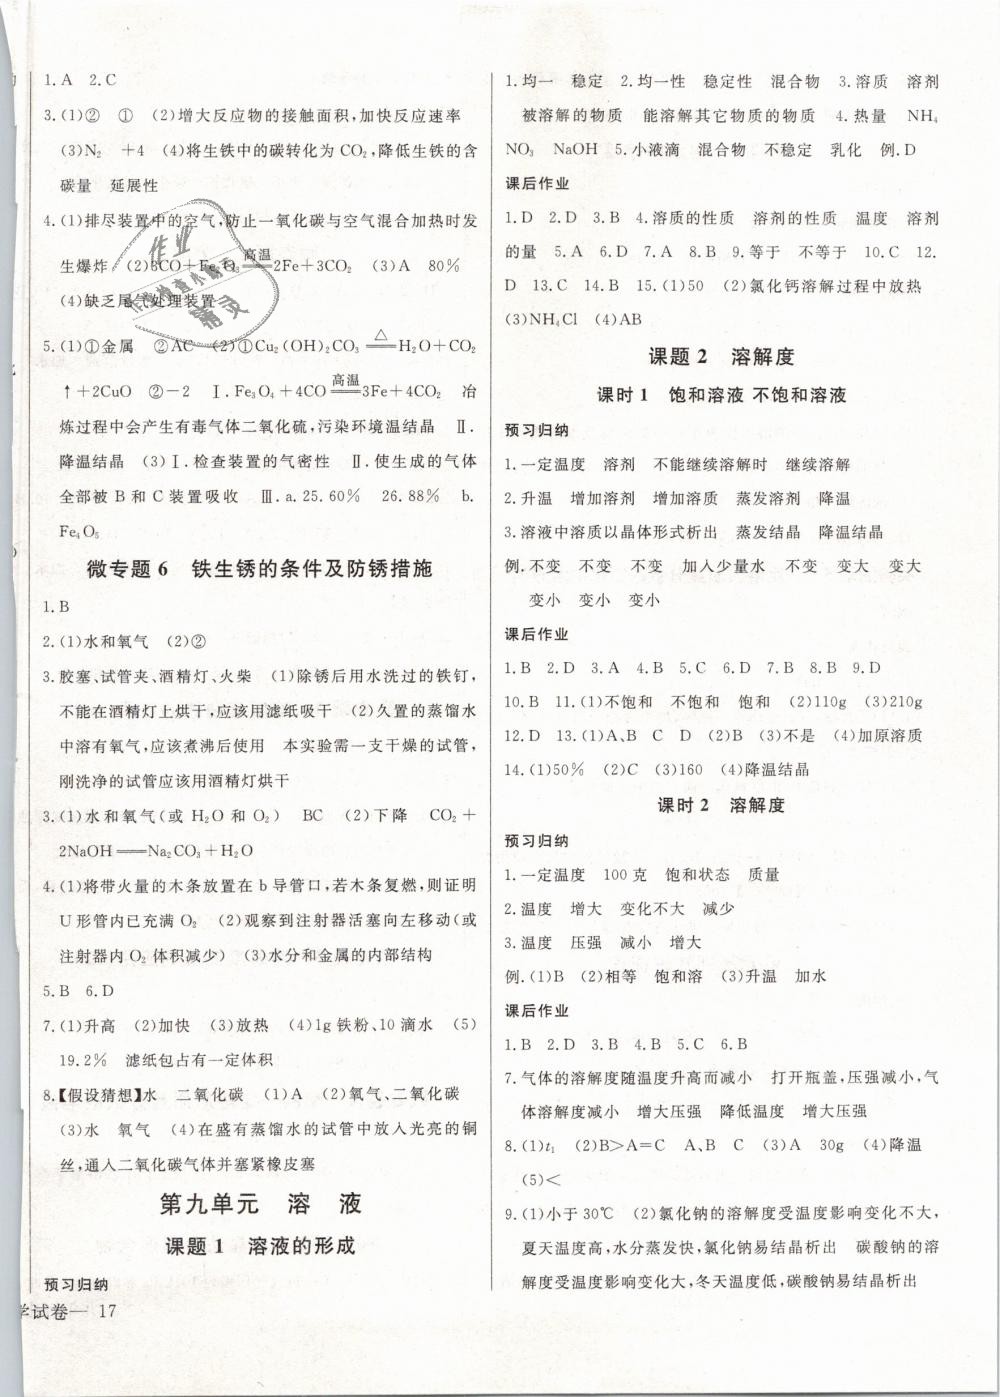 1.A 2.C
3.(1)② ① (2)增大反应物的接触面积,加快反应速率
(3)N₂ +4 (4)将生铁中的碳转化为CO₂,降低生铁的含
碳量 延展性
4.(1)排尽装置中的空气,防止一氧化碳与空气混合加热时发
生爆炸 (2)3CO+Fe₂O₃ 高温 2Fe+3CO₂ (3)A 80%
(4)缺乏尾气处理装置
5.(1)①金属 ②AC (2)①Cu₂(OH)₂CO₃ △ H₂O+CO₂
↑+2CuO ②-2 Ⅰ.Fe₃O₄+4CO 高温 3Fe+4CO₂ 冶
炼过程中会产生有毒气体二氧化硫,污染环境温结晶 Ⅱ.
降温结晶 (3)Ⅰ.检查装置的气密性 Ⅱ.使生成的气体
全部被B和C装置吸收 Ⅲ.a.25.60% 26.88% b.
Fe₄O₅
微专题6 铁生锈的条件及防锈措施
1.B
2.(1)水和氧气 (2)②
3.胶塞、试管夹、酒精灯、火柴 (1)除锈后用水洗过的铁钉,
不能在酒精灯上烘干,应该用滤纸吸干 (2)久置的蒸馏水
中溶有氧气,应该煮沸后使用 本实验需一支干燥的试管,
刚洗净的试管应该用酒精灯烘干
3.(1)水和氧气(或H₂O和O₂) BC (2)下降 CO₂+
2NaOH══Na₂CO₃+H₂O
4.(1)将带火量的木条放置在b导管口,若木条复燃,则证明
U形管内已充满O₂ (2)观察到注射器活塞向左移动(或
注射器内O₂体积减少) (3)水分和金属的内部结构
5.B 6.D
7.(1)升高 (2)加快 (3)放热 (4)1g铁粉、10滴水 (5)
19.2% 滤纸包占有一定体积
8.【假设猜想】水 二氧化碳 (1)A (2)氧气、二氧化碳
(3)水 氧气 (4)在盛有蒸馏水的试管中放入光亮的铜
丝,通入二氧化碳气体并塞紧橡皮塞
第九单元 溶 液
课题1 溶液的形成
预习归纳
学试卷— 17
1.均一 稳定 2.均一性 稳定性 混合物 3.溶质 溶剂
被溶解的物质 能溶解其它物质的物质 4.热量 NH₄
NO₃ NaOH 5.小液滴 混合物 不稳定 乳化 例.D
课后作业
1.D 2.D 3.B 4.溶质的性质 溶剂的性质 温度 溶剂
的量 5.A 6.D 7.A 8.B 9.等于 不等于 10.C 12.
D 13.C 14.B 15.(1)50 (2)氯化钙溶解过程中放热
(3)NH₄Cl (4)AB
课题2 溶解度
课时1 饱和溶液 不饱和溶液
预习归纳
1.一定温度 溶剂 不能继续溶解时 继续溶解
2.升温 增加溶剂 增加溶质 蒸发溶剂 降温
3.溶液中溶质以晶体形式析出 蒸发结晶 降温结晶
例.不变 不变 不变 加入少量水 不变 变大 变大
变小 变小 变小
课后作业
1.B 2.D 3.A 4.B 5.C 6.D 7.B 8.B 9.D
10.B 11.(1)不饱和 不饱和 饱和 (2)110g (3)210g
12.D 13.(1)A、B C D (2)B (3)不是 (4)加原溶质
14.(1)50% (2)C (3)160 (4)降温结晶
课时2 溶解度
预习归纳
1.一定温度 100克 饱和状态 质量
2.温度 增大 变化不大 减少
3.温度 压强 减小 增大
例.(1)B (2)相等 饱和溶 (3)升温 加水
课后作业
1.B 2.D 3.B 4.B 5.C 6.B
7.气体的溶解度随温度升高而减小 打开瓶盖,压强减小,气
体溶解度减小 增大压强 降低温度 增大压强
8.(1)t₁ (2)B>A=C A、B C (3)A 30g (4)降温
(5)<
9.(1)小于30℃ (2)氯化钠的溶解度受温度影响变化不大,
夏天温度高,水分蒸发快,氯化钠易结晶析出 碳酸钠的溶
解度受温度影响变化大,冬天温度低,碳酸钠易结晶析出